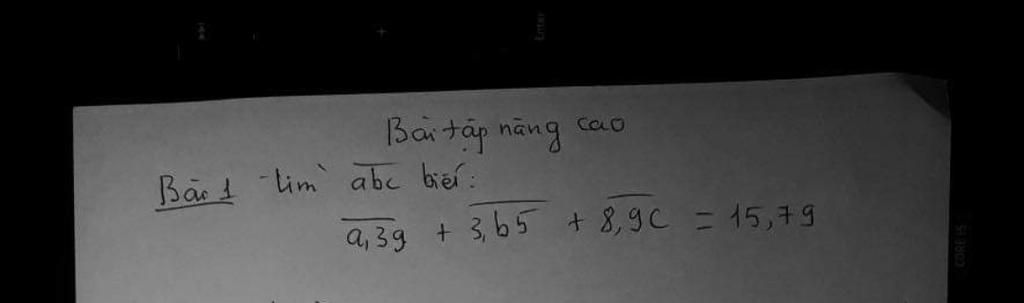 Enter
Bài tập nâng cao
Bài 1 Tìm abc biết:
a,39 + 3,b5 + 8,9c = 15,79
CORE i5